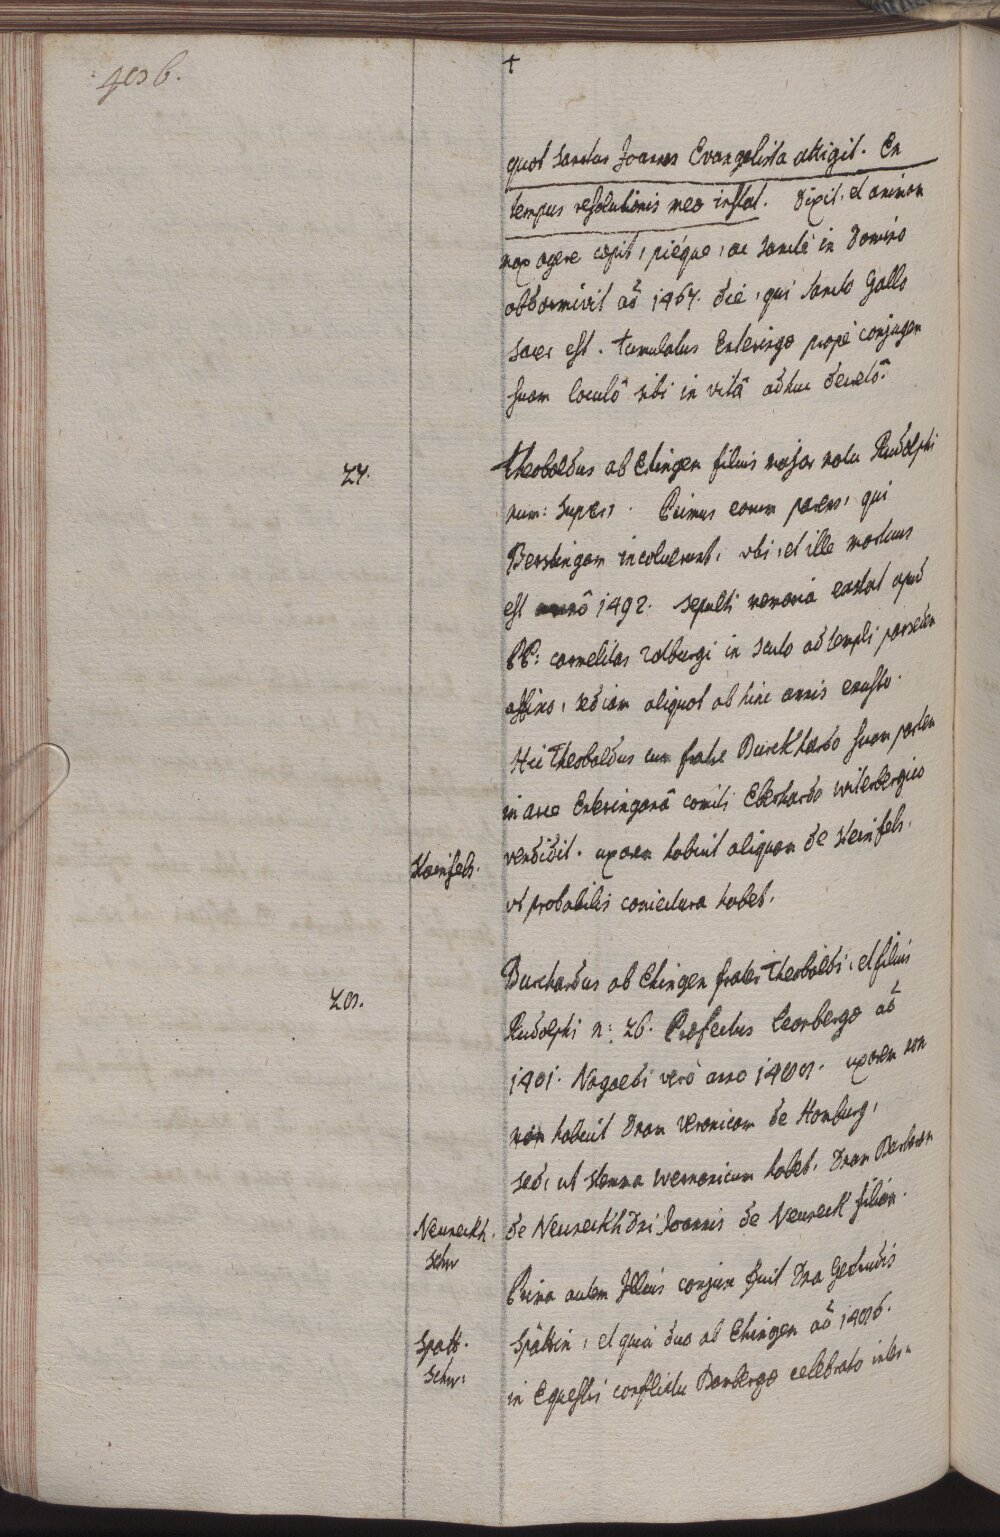 †
quot Sanctus Joannes Evangelista attigit. En
tempus resolutionis meæ instat. Dixit, et animam
mox agere cæpit, piéque, ac Sancté in Domino
obdormivit aõ 1467. die, qui Sancto Gallo
Sacer est. tumulatus Enteringæ propé conjugem
suam loculô sibi in vitâ adhuc
27. Theobaldus ab Ehingen filius major natu Rudolphi
num: Super: Primus eorum parens, qui
incoluerunt, ubi, et ille mortuus
est annô 1492. sepulti memoria extat apud
PP: carmelitas Rotburgi in Scuto ad templi parietem
affixo, sed iam aliquot ab hinc annis
Hic Theobaldus cum fratre Burckhardo suam partem
in arce Enteringanâ comiti Eberhardo wirtenbergico
vendidit. uxorem habuit aliquam de Steinfels,
Stainfels.
ut probabilis coniectura habet.
28. Burchardus ab Ehingen frater Theobaldi, et filius
Rudolphi n: 26. Præfectus Leonbergæ aõ
1481. Nagoldi verò anno 1488. uxorem non
non habuit Dnam Veronicam de Homburg,
sed, ut stemma wernavicum habet, Dnam Barbaram
de Neuneckh Dni Joannis de Neuneck filiam.
Neuneckh.
schw
Prima autem Illius conjux fuit Dna Gertrudis
Spättin, et quia duo ab Ehingen aõ 1486.
Spatt.
Schw:
in Equestri conflictu Bambergæ celebrato inter=